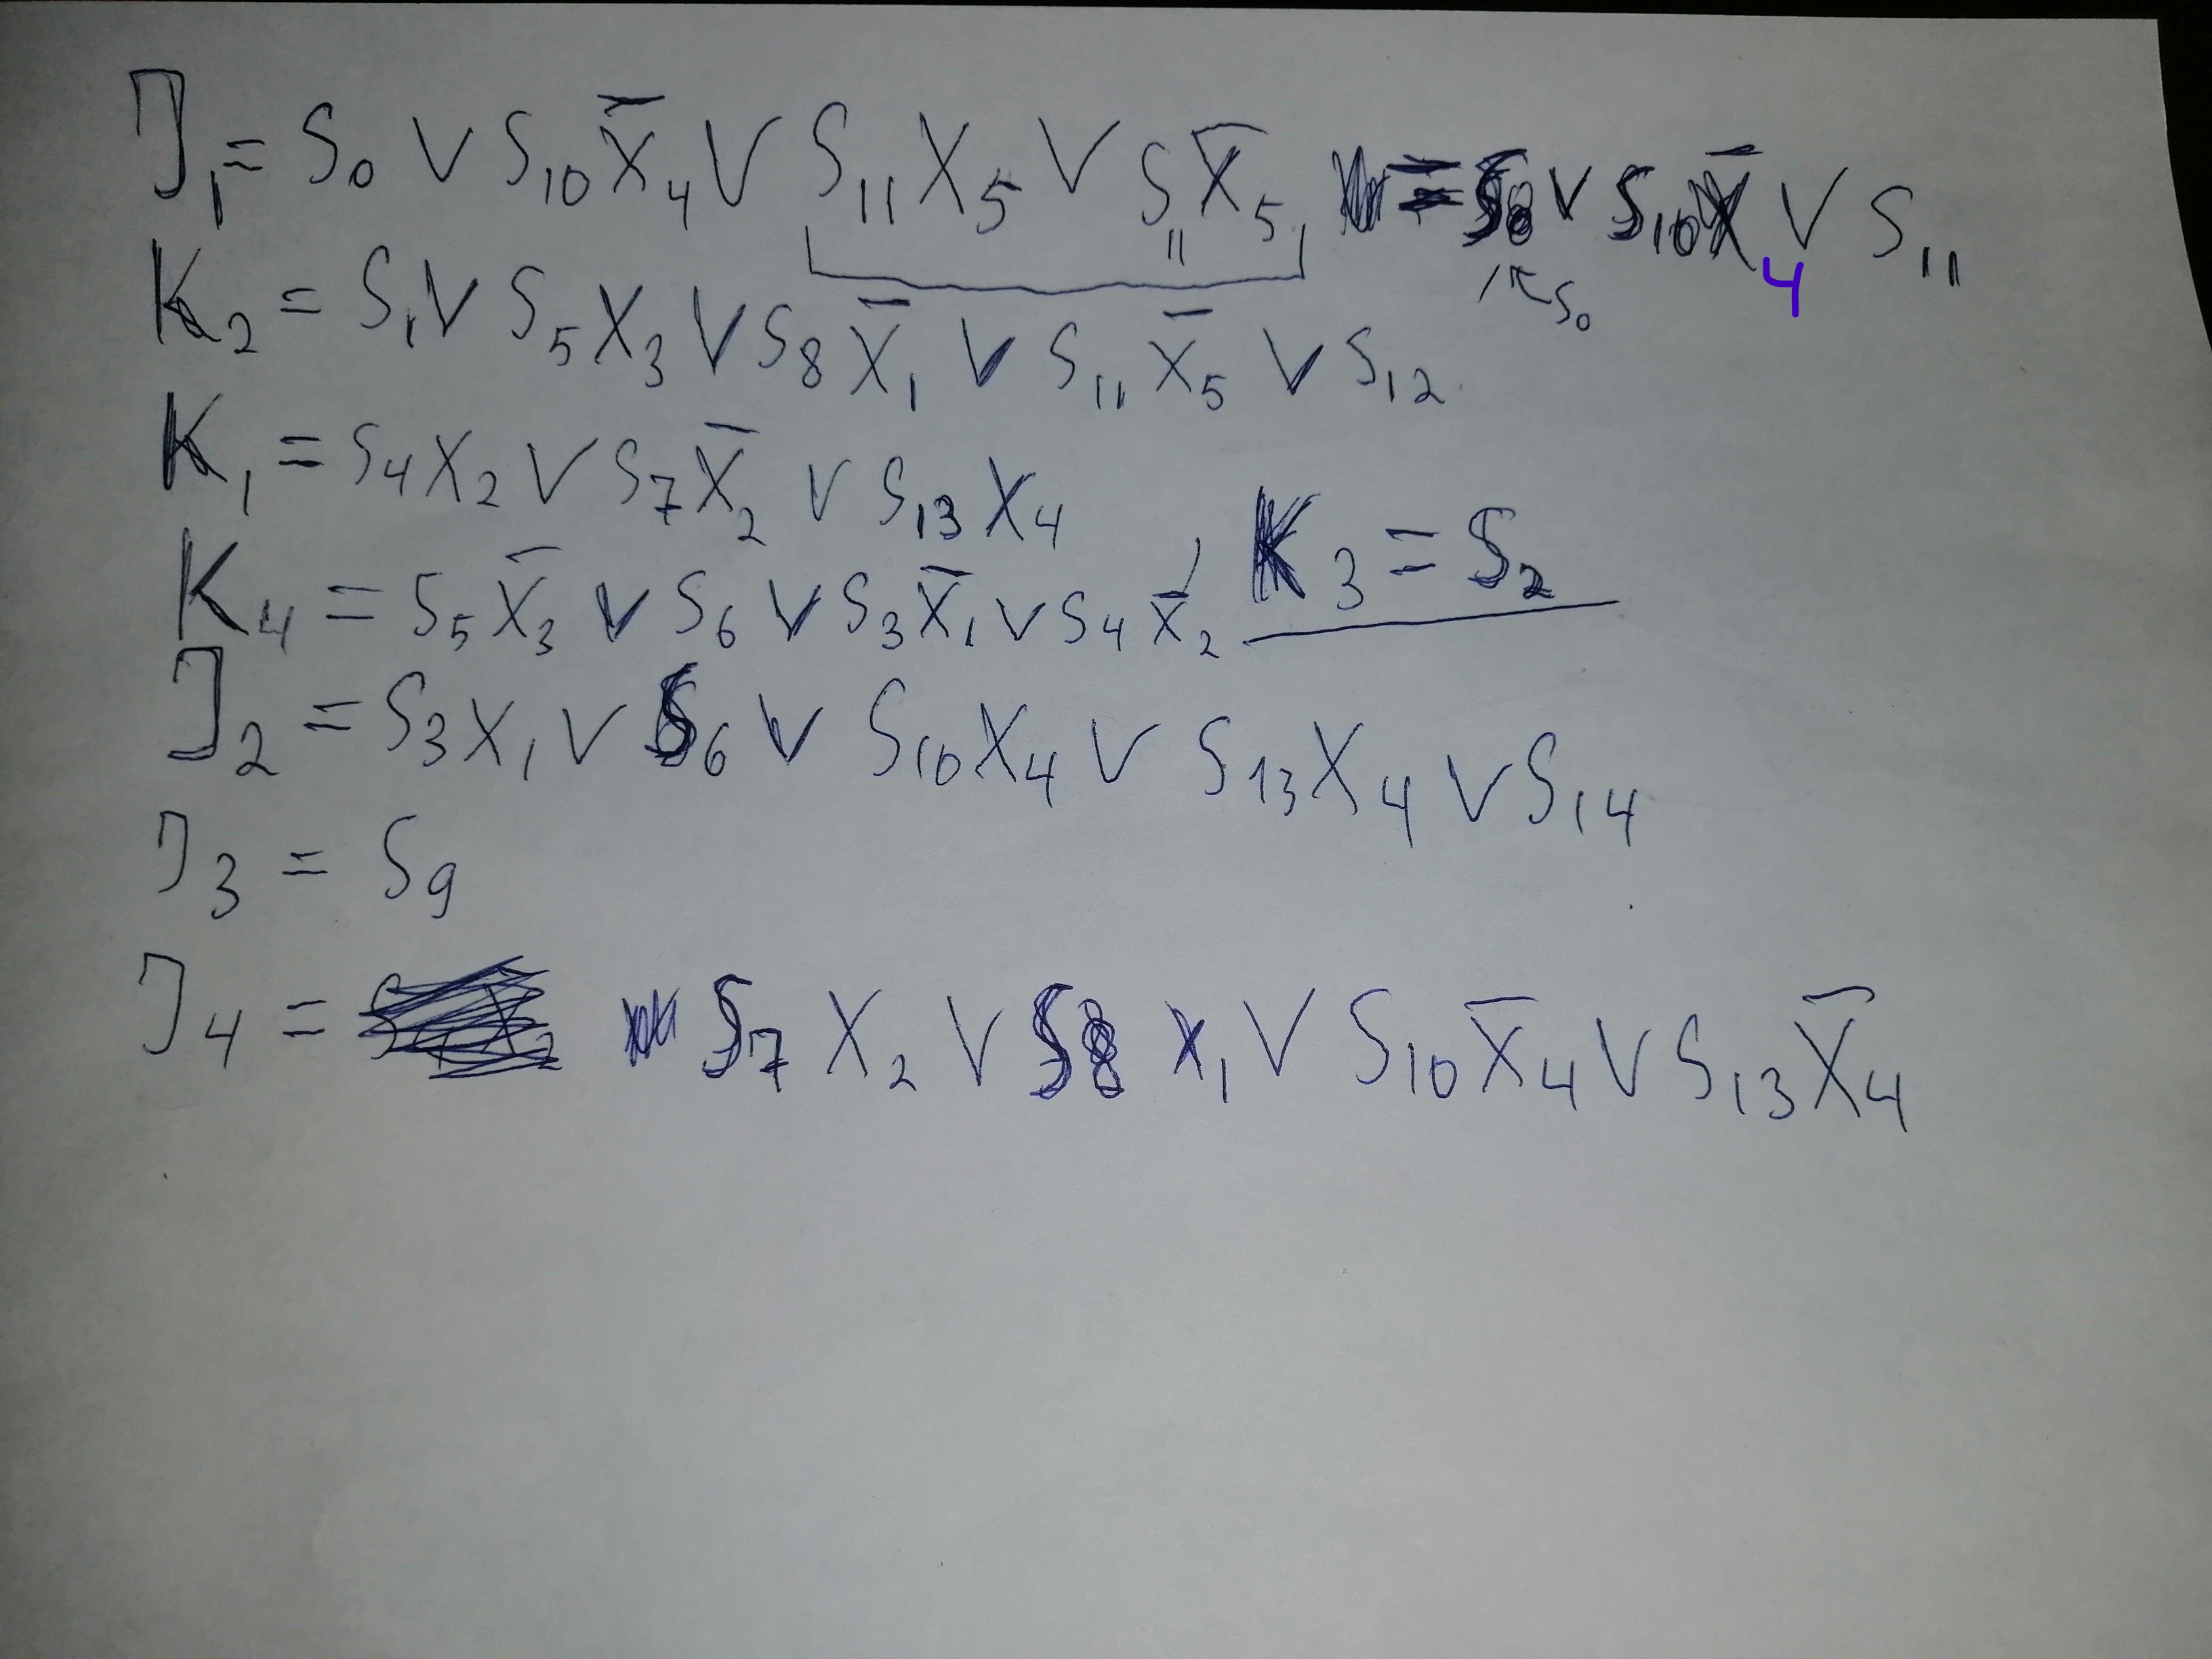 J₁ = S₀ ∨ S₁₀X̄₄ ∨ S₁₁X₅ ∨ S₁₁X̄₅ = S₀ ∨ S₁₀X̄₄ ∨ S₁₁
S₀
K₂ = S₁ ∨ S₅X₃ ∨ S₈X̄₁ ∨ S₁₁X̄₅ ∨ S₁₂
K₁ = S₄X₂ ∨ S₇X̄₂ ∨ S₁₃X₄
K₄ = S₅X̄₃ ∨ S₆ ∨ S₃X̄₁ ∨ S₄X̄₂, K₃ = S₂
J₂ = S₃X₁ ∨ S₆ ∨ S₁₀X₄ ∨ S₁₃X₄ ∨ S₁₄
J₃ = S₉
J₄ = S₇X₂ ∨ S₈X₁ ∨ S₁₀X̄₄ ∨ S₁₃X̄₄